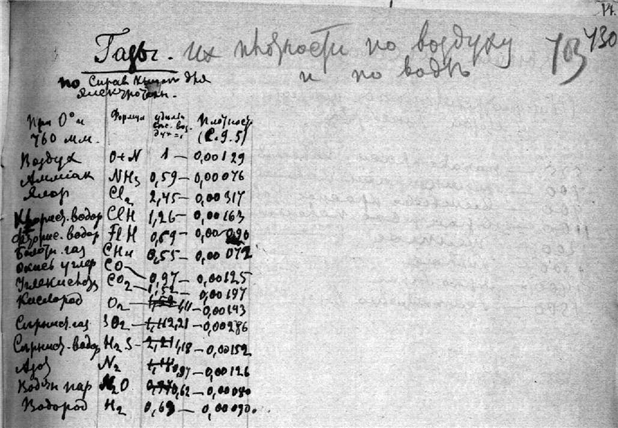 703 730
Газы. Их плотности по воздуху
и по воде
по Справ. книжке для
электротехн.
При 0° и 760 мм. Формула удельн. вес. возд.=1 Плотность (C.g.S)
Воздух O+N 1 — 0,00129
Аммиак NH3 0,59 — 0,00076
Хлор Cl2 2,45 — 0,00317
Хлорист. водор ClH 1,26 — 0,00163
Фторис. водор FlH 0,69 — 0,00090
Болотн. газ CH4 0,55 — 0,00072
Окись углер CO 0,97 — 0,00125
Углекислота CO2 1,52 — 0,00197
Кислород O2 1,11 — 0,00143
Сернист. газ SO2 — 2,21 — 0,00286
Сернист. водор H2S — 1,18 — 0,00152
Азот N2 0,97 — 0,00126
Водян пар H2O 0,62 — 0,00080
Водород H2 0,69 — 0,00090